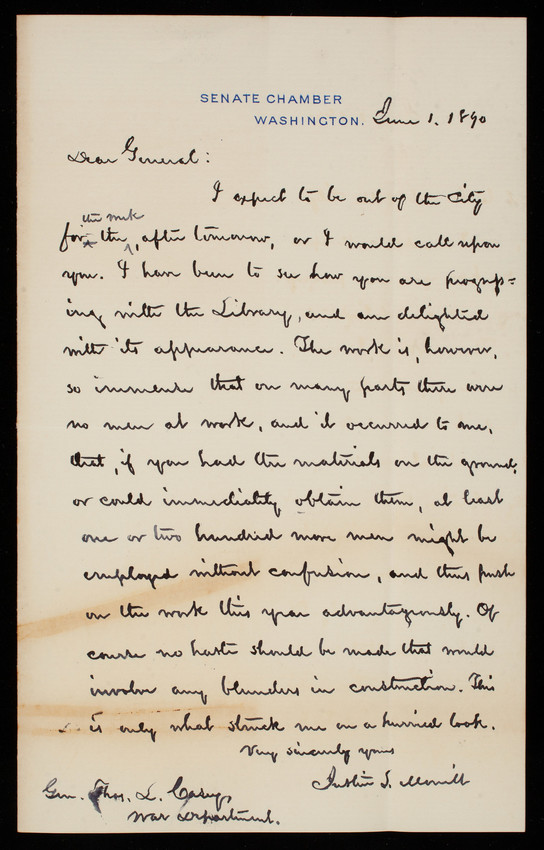 SENATE CHAMBER
WASHINGTON. June 1. 1890
Dear General:
I expect to be out of the City
the week
for the, after tomorrow, or I would call upon
you. I have been to see how you are progress=
ing with the Library, and am delighted
with its appearance. The work is, however,
so immense that on many parts there are
no men at work, and it occurred to me,
that, if you had the materials on the ground,
or could immediately obtain them, at least
one or two hundred more men might be
employed without confusion, and thus push
on the work this year advantageously. Of
course no haste should be made that would
involve any blunders in construction. This
is only what struck me on a hurried look.
Very sincerely yours
Justin S. Morrill
Gen. Thos. L. Casey,
War Department.